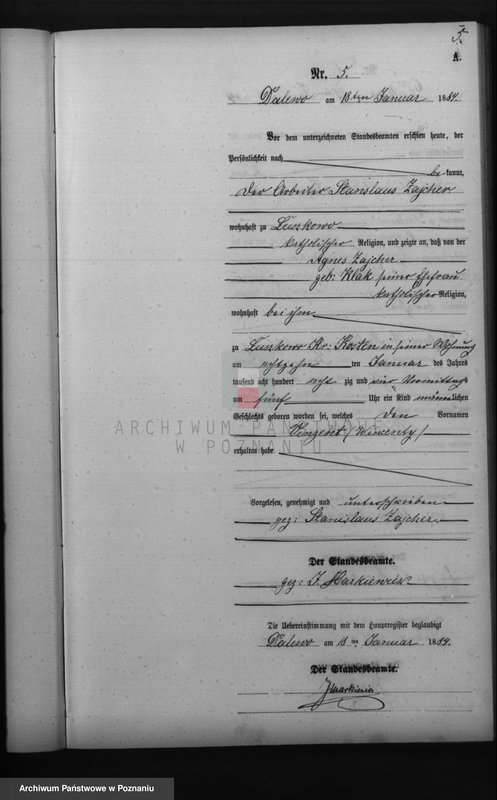 5.
A.
Nr. 5.
Dalewo am 18ten Januar 1884.
Vor dem unterzeichneten Standesbeamten erschien heute, der
Persönlichkeit nach
be kannt,
der Arbeiter Stanislaus Zajcher
wohnhaft zu Luszkowo
katholischer Religion, und zeigte an, daß von der
Agnes Zajcher
geb: Klak seiner Ehefrau
katholischer Religion,
wohnhaft bei ihm
zu Luszkowo Kr: Kosten in seiner Wohnung
am achtzehn ten Januar des Jahres
tausend acht hundert acht zig und vier Vormittags
um fünf Uhr ein Kind männlichen
Geschlechts geboren worden sei, welches den Vornamen
Vinzent /Wincenty/
erhalten habe
ARCHIWUM PAŃSTWOWE
W POZNANIU
Vorgelesen, genehmigt und unterschrieben
gez: Stanislaus Zajcher
Der Standesbeamte.
gez: J. Markiewicz
Die Uebereinstimmung mit dem Hauptregister beglaubigt
Dalewo am 18 ten Januar 1884.
Der Standesbeamte.
JMarkiewicz
Archiwum Państwowe w Poznaniu